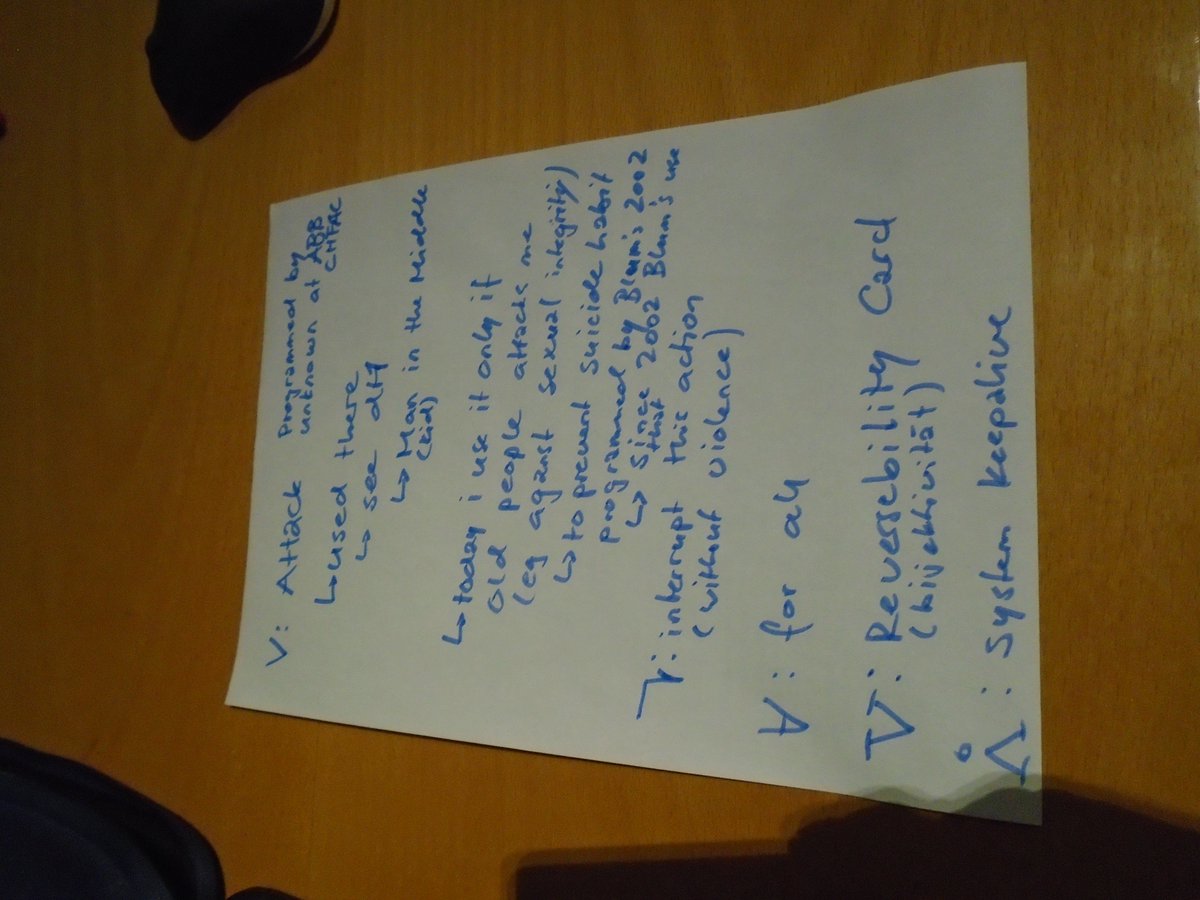 V: Attack Programmed by
unknown at ABB
CHFAC
↳ used there
↳ see dH
↳ Man in the Middle
(kid)
↳ today i use it only if
old people attacks me
(eg against sexual integrity)
↳ to prevent suicide habit
programmed by Blum's 2002
↳ since 2002 Blum's use
that
: interrupt this action
(without violence)
∀ : for all
: Reversebility Card
(bijektivität)
: System keepalive